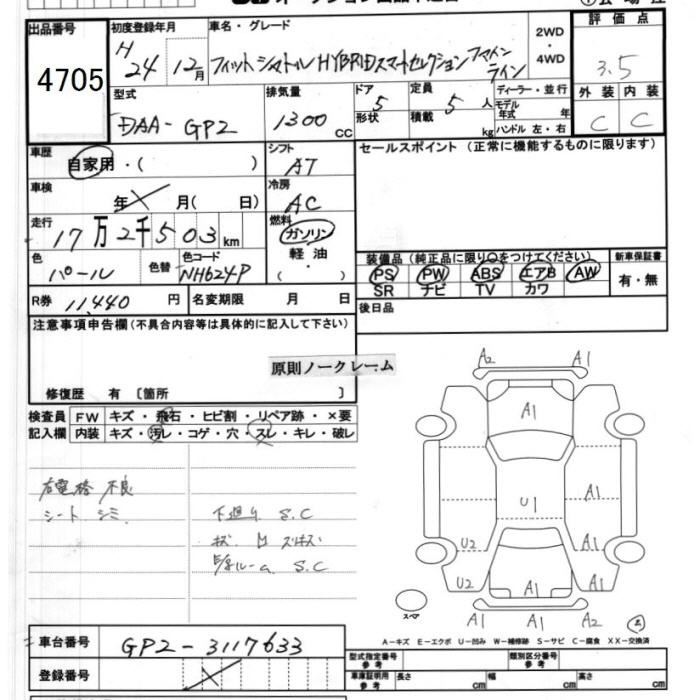 出品番号
4705
初度登録年月
H
24 12月
車名・グレード
フィットシャトル HYBRIDスマートセレクションファイン
ライン
2WD
・
4WD
評価点
3.5
外装 内装
C C
型式
DAA-GP2
排気量
1300 CC
ドア
5
形状
定員
5 人
積載 kg
ディーラー・並行
モデル
年式 年
ハンドル 左・右
車歴
自家用・( )
シフト
AT
セールスポイント (正常に機能するものに限ります)
車検
年 月( 日)
冷房
AC
走行
17万2千503km
燃料
ガソリン
軽油
・( )
色
パール
色替
色コード
NH624P
装備品 (純正品に限り〇をつけてください)
PS PW ABS エアB AW
SR ナビ TV カワ
新車保証書
有・無
R券 11,440 円
名変期限 月 日
後日品
注意事項申告欄(不具合内容等は具体的に記入して下さい)
原則ノークレーム
修復歴 有 〔箇所 〕
検査員
記入欄
FW キズ・飛石・ヒビ割・リペア跡・×要
内装 キズ・汚レ・コゲ・穴・スレ・キレ・破レ
右電格 不良
シート シミ
下廻り S.C
S.C
A2 A1
A1
U1 A1
U2 A1
U2 A1 A1
A1 A1 A2
スペア
A-キズ E-エクボ U-凹み W-補修跡 S-サビ C-腐食 XX-交換済
車台番号 GP2-3117633
登録番号
型式指定番号
参考
類別区分番号
参考
車庫証明用
参考
長さ cm 幅 cm 高さ cm